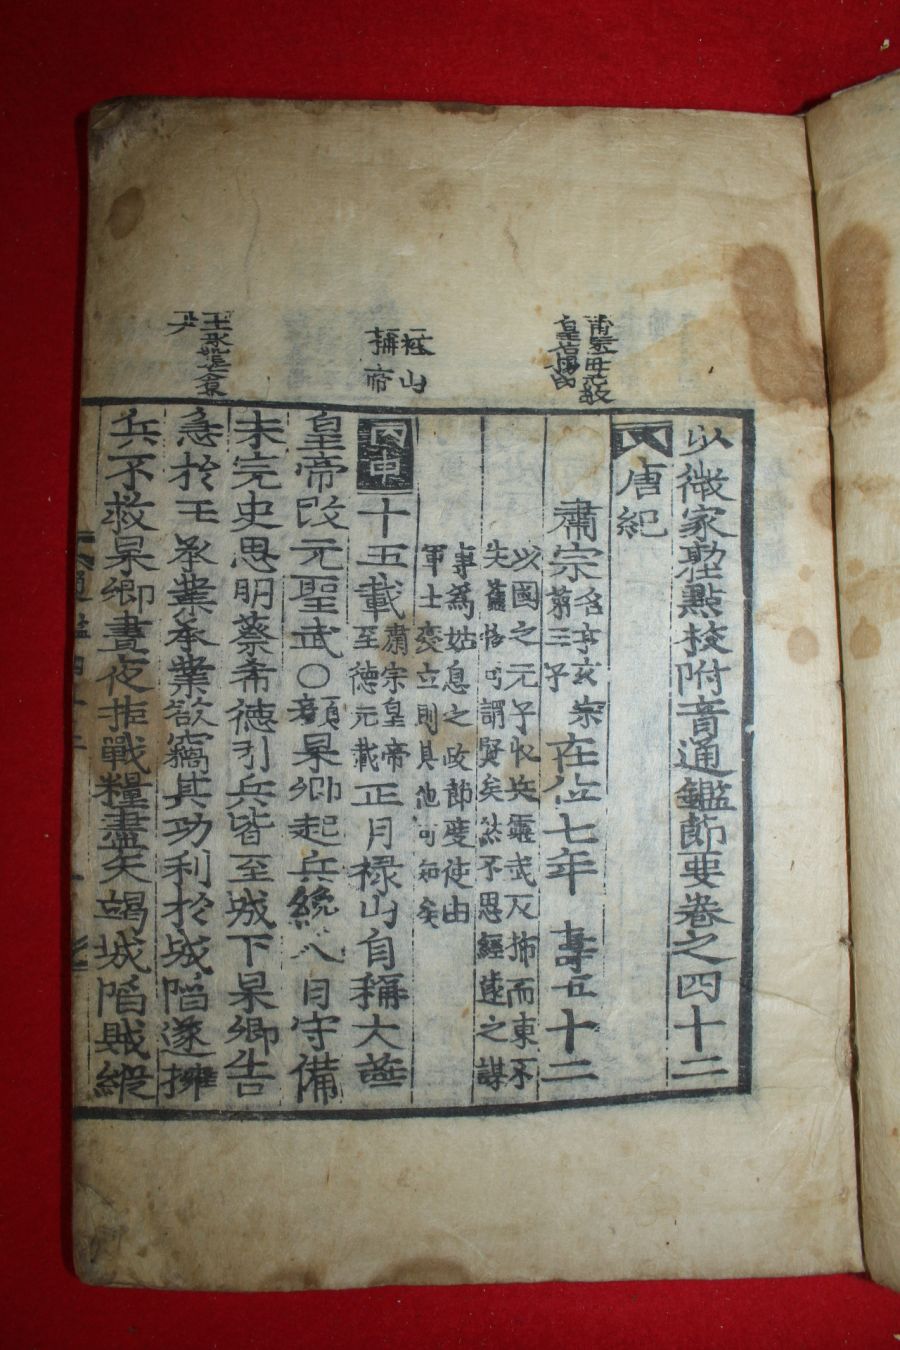 以徵家塾點校附音通鑑節要卷之四十二
唐紀
肅宗名亨玄宗第三子在位七年 壽五十二
以國之元子收兵靈武反旆而東不
失舊物可謂賢矣然不思經遠之謀
事為姑息之政節度使由
軍士廢立則其他可知矣
丙申十五載肅宗皇帝至德元載正月祿山自稱大燕
皇帝改元聖武○顏杲卿起兵纔八日守備
未完史思明蔡希德引兵皆至城下杲卿告
急於王承業承業欲竊其功利於城陷遂擁
兵不救杲卿晝夜拒戰糧盡矢竭城陷賊縱
祿山
稱帝